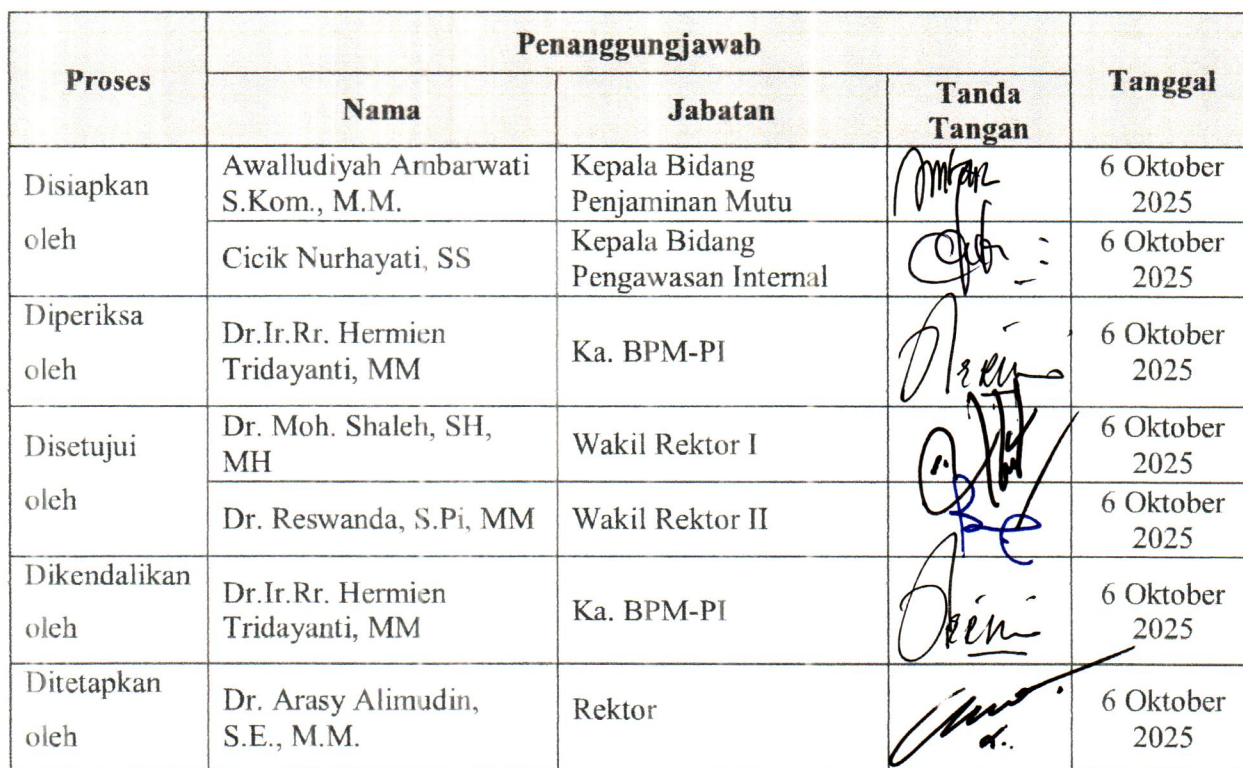 Proses
Penanggungjawab
Tanggal
Nama
Jabatan
Tanda
Tangan
Disiapkan
oleh
Awalludiyah Ambarwati
S.Kom., M.M.
Kepala Bidang
Penjaminan Mutu
6 Oktober
2025
Cicik Nurhayati, SS
Kepala Bidang
Pengawasan Internal
6 Oktober
2025
Diperiksa
oleh
Dr.Ir.Rr. Hermien
Tridayanti, MM
Ka. BPM-PI
6 Oktober
2025
Disetujui
oleh
Dr. Moh. Shaleh, SH,
MH
Wakil Rektor I
6 Oktober
2025
Dr. Reswanda, S.Pi, MM
Wakil Rektor II
6 Oktober
2025
Dikendalikan
oleh
Dr.Ir.Rr. Hermien
Tridayanti, MM
Ka. BPM-PI
6 Oktober
2025
Ditetapkan
oleh
Dr. Arasy Alimudin,
S.E., M.M.
Rektor
6 Oktober
2025